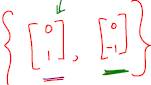 { [ 0 1 ] , [ 0 -1 ] }